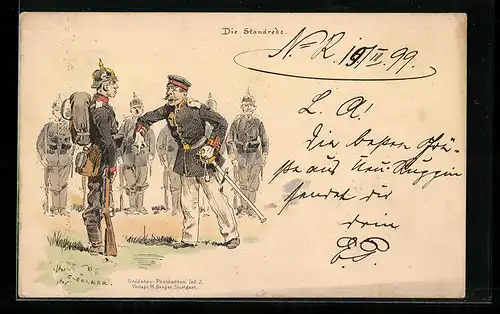 Die Standrede.
N=R. 19/IV.99.
L. A!
Die besten Grü-
ße aus Neu-Ruppin
sendet dir
dein
Soldaten-Postkarten Ser. 3.
Verlag H. Seeger, Stuttgart.
BECKER.